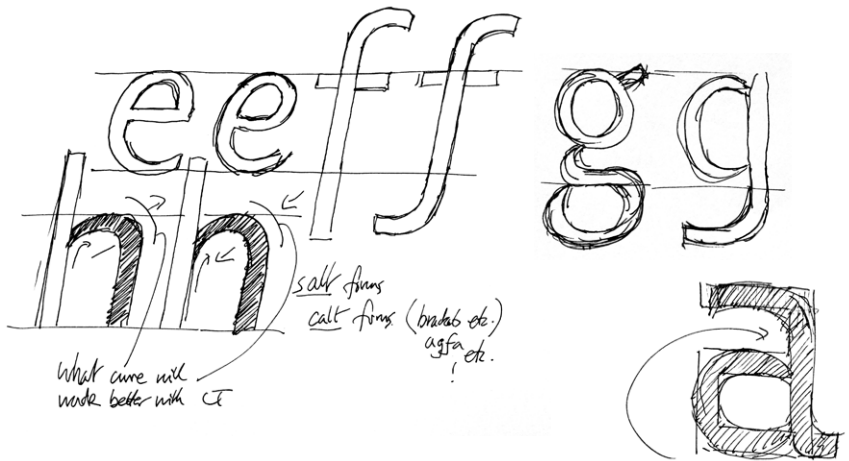 e e f f g g
h h
salt forms
calt forms (
etc.)
agfa
etc.
!
What curve will
work better with
a